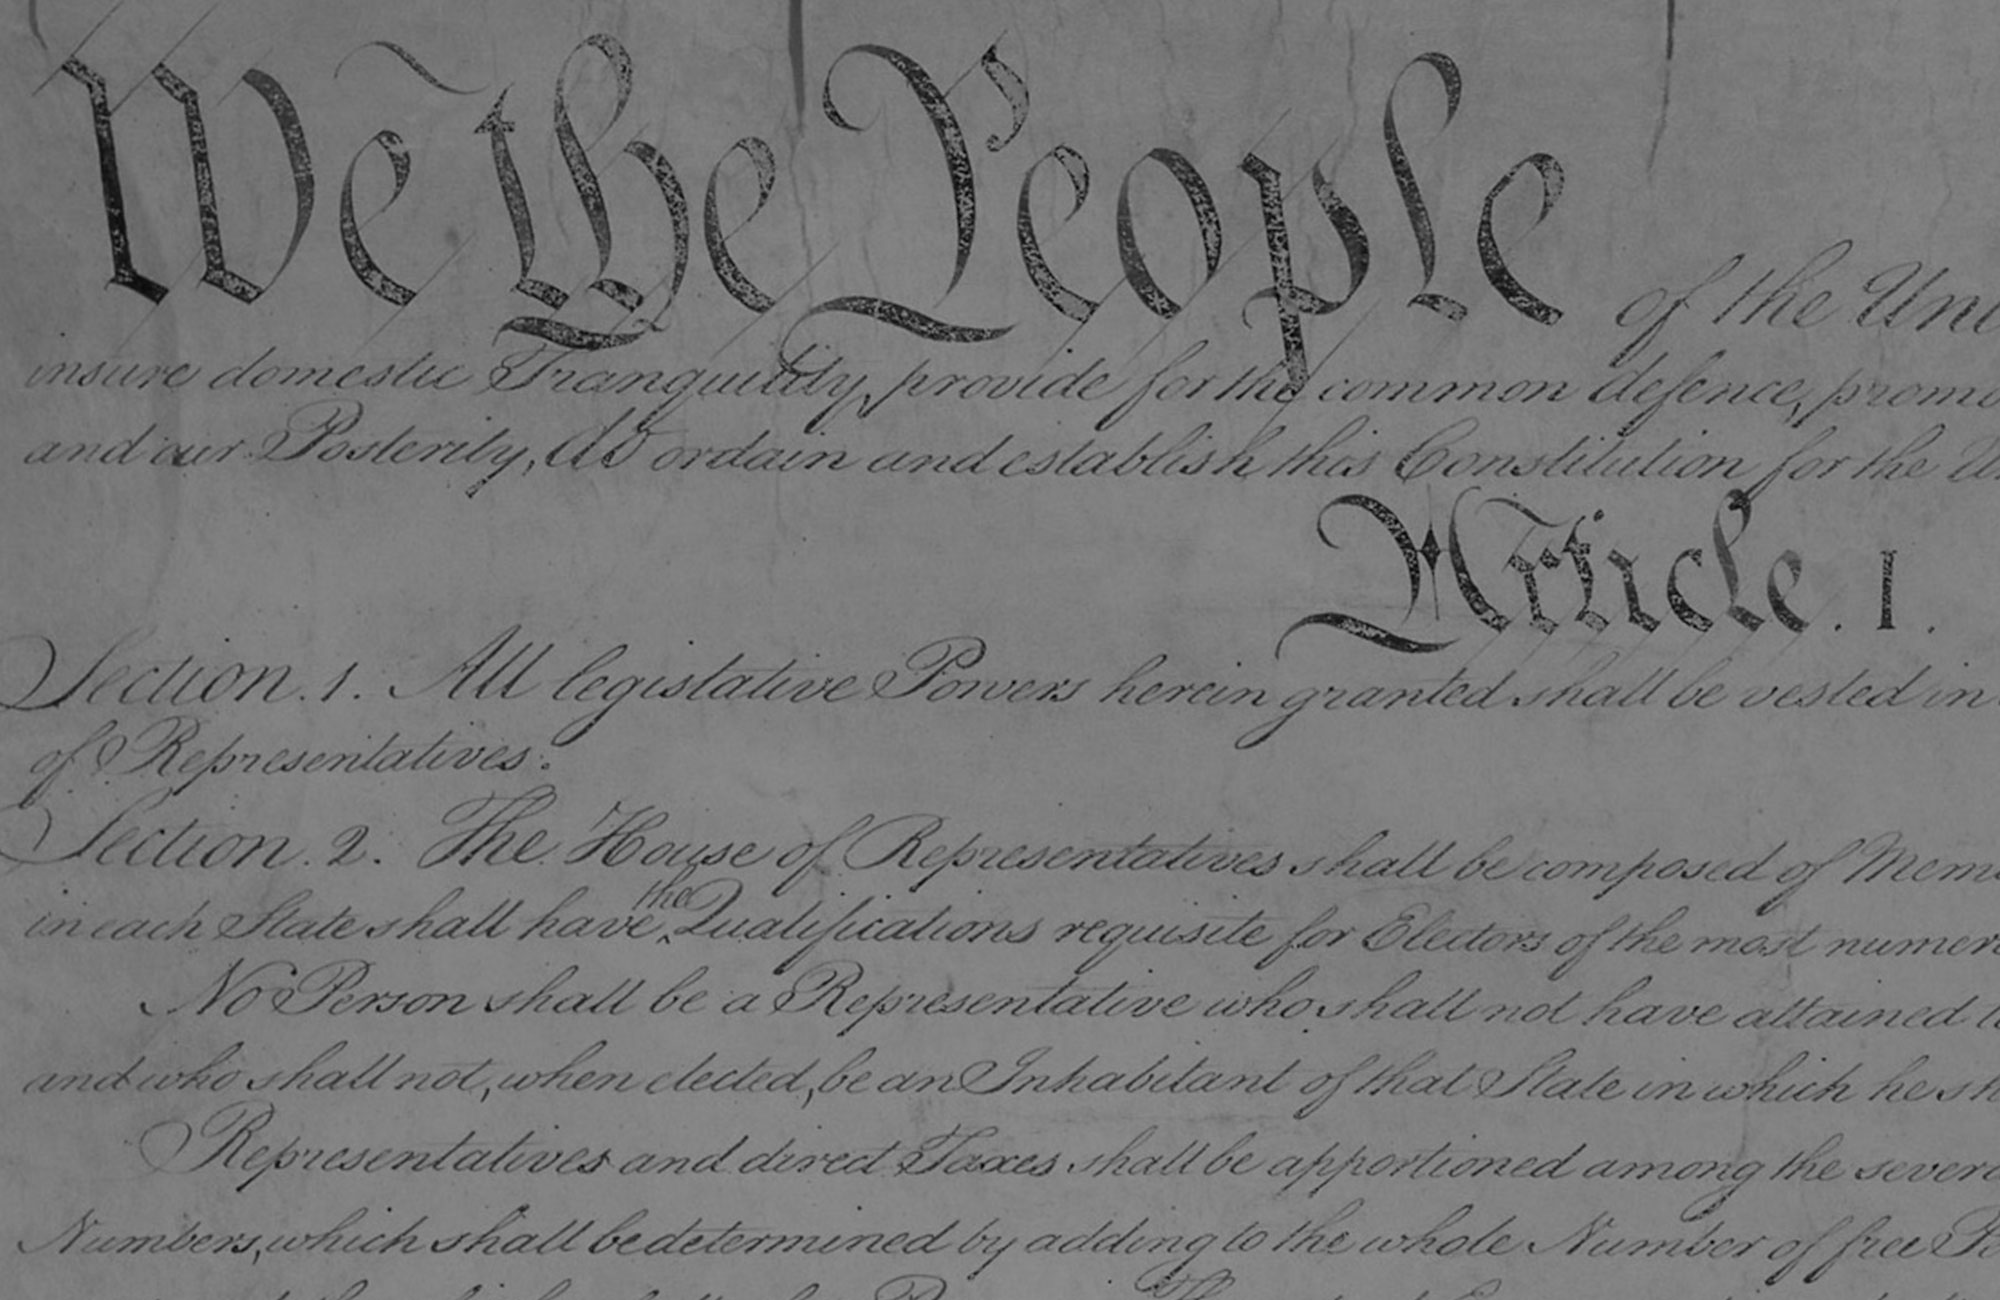 We the People of the Uni
insure domestic Tranquility, provide for the common defence, promo
and our Posterity, do ordain and establish this Constitution for the Un
Article. I.
Section. 1. All legislative Powers herein granted shall be vested in
of Representatives.
Section. 2. The House of Representatives shall be composed of Mem
the
in each State shall have Qualifications requisite for Electors of the most numero
No Person shall be a Representative who shall not have attained to
and who shall not, when elected, be an Inhabitant of that State in which he sh
Representatives and direct Taxes shall be apportioned among the severa
Numbers, which shall be determined by adding to the whole Number of free Pe